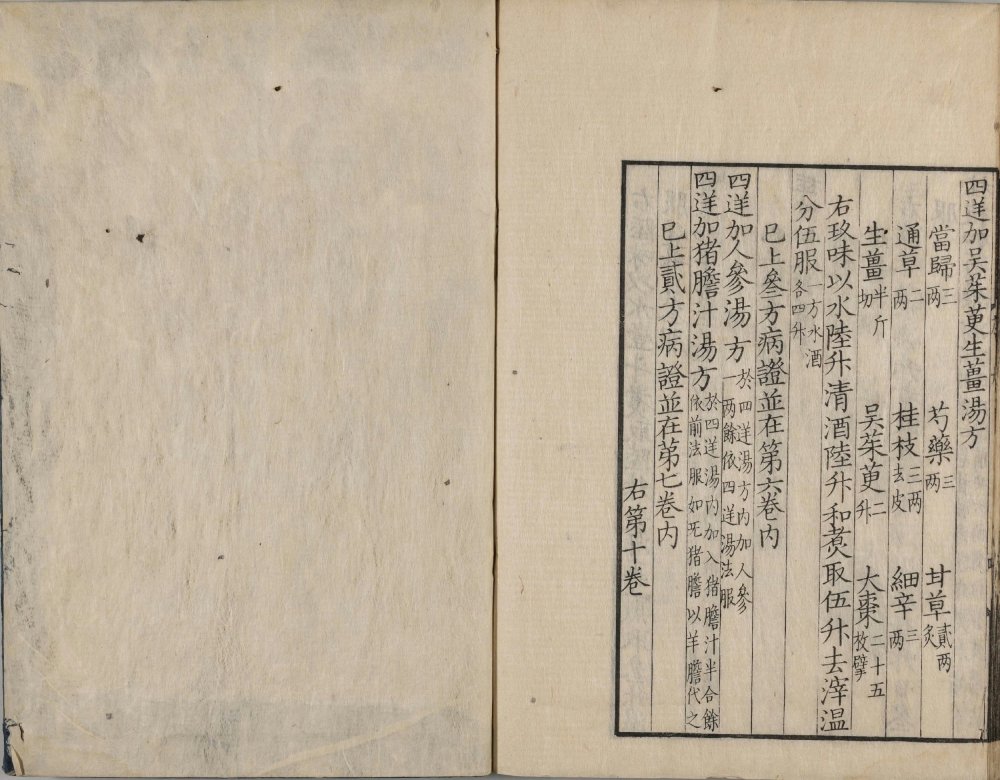 四逆加吴茱萸生薑湯方
當歸三两 芍藥三两 甘草貳两炙
通草二两 桂枝三两去皮 細辛三两
生薑半斤切 吴茱萸二升 大棗二十五枚擘
右玖味以水陸升清酒陸升和煑取伍升去滓温
分伍服一方水酒各四升
巳上叄方病證並在第六卷内
四逆加人參湯方於四逆湯方内加人參一两餘依四逆湯法服
四逆加猪膽汁湯方於四逆湯内加入猪膽汁半合餘依前法服如无猪膽以羊膽代之
巳上貳方病證並在第七卷内
右第十卷